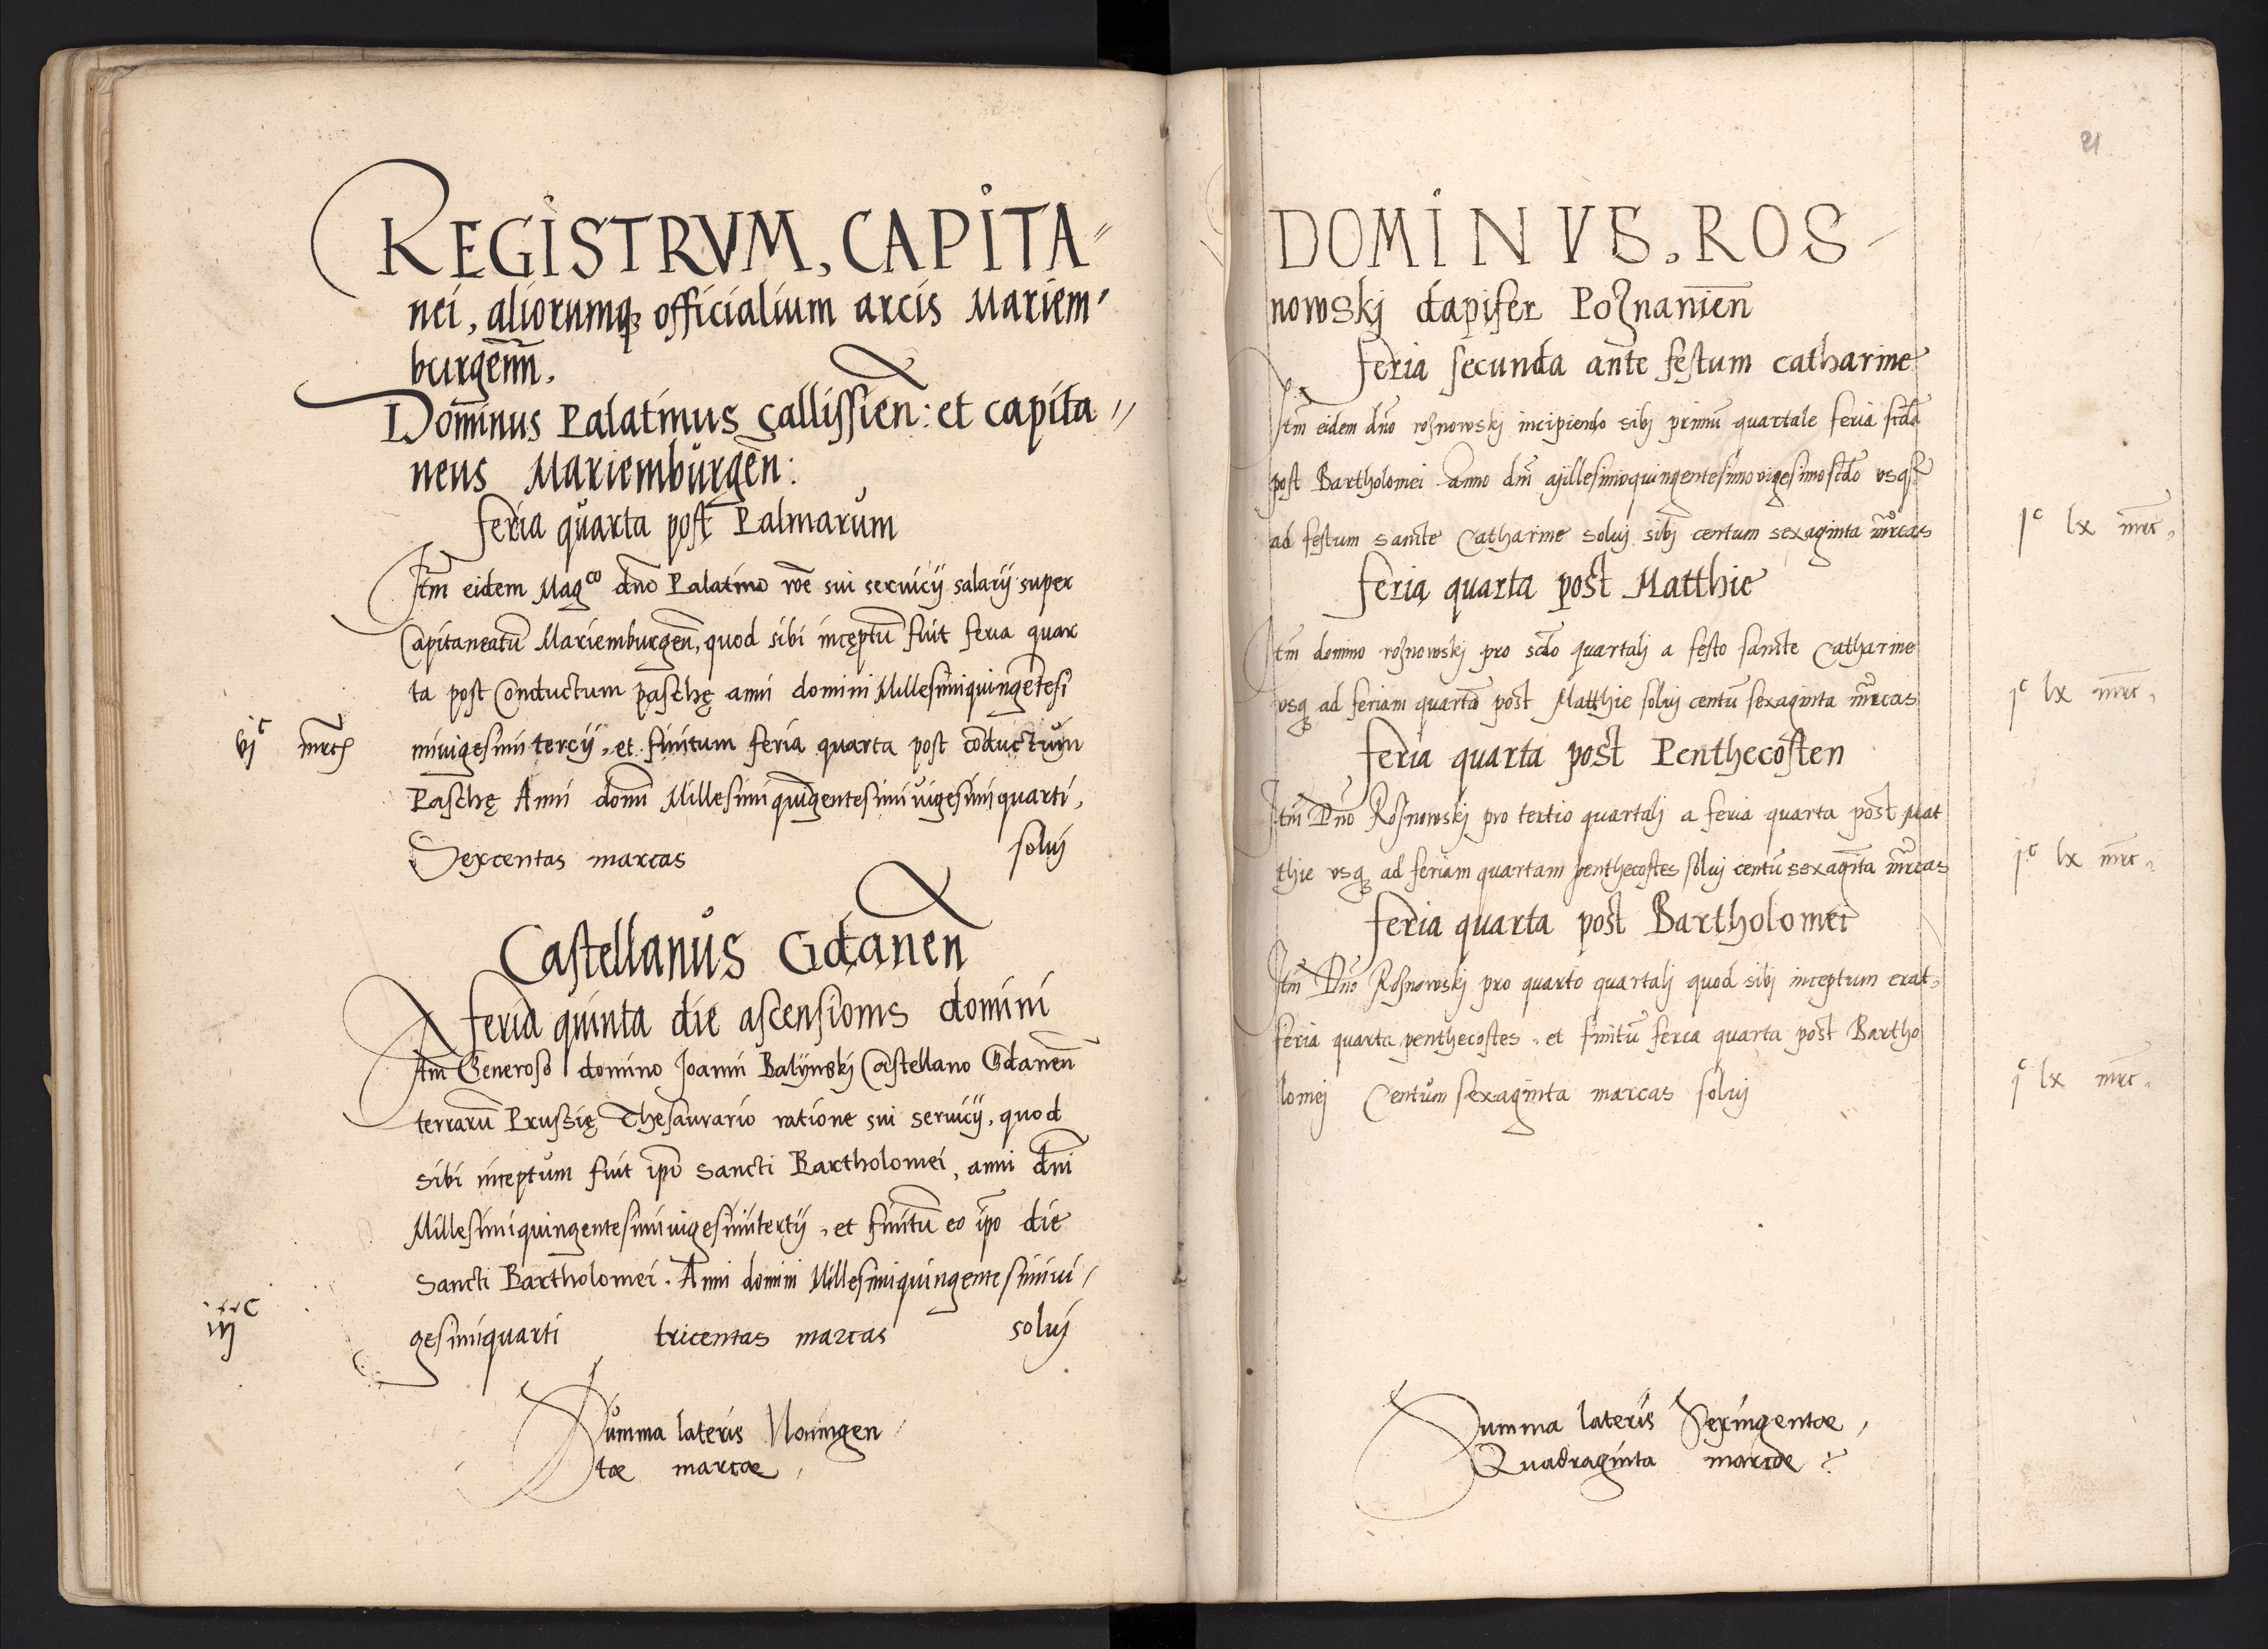 REGISTRVM, CAPITA=
nei, aliorumq3 officialium arcis Mariem-
burgeñn.
Dominus Palatinus Callissień: et capita //
neus Mariemburgeñ:
feria quarta post Palmarum
Itm̄ eidem Magco dno Palatino rōe sui seruicij salarij super
Capitaneatū Mariemburgeñ, quod sibi inceptū fuit feria quar
ta post Conductum paschę anni domini Millesimiquingētesi
vjc mrcs
miuigesimi tercij, et finitum feria quarta post cōductum
Paschę Anni domi Millesimiquingentesimiuigesimiquarti,
Sexcentas marcas soluj
Castellanus Gdaneñ
feria quinta die ascensionis domini
Itm̄ Generoso domino Joanni Balijnskj Castellano Gdaneñ
terrarū Prussię Thesaurario ratione sui seruicij, quod
sibi inceptum fuit ipō sancti Bartholomei, anni dn̄i
Millesimiquingentesimiuigesimitertij, et finitū eo ip̄o die
Sancti Bartholomei. Anni domini Millesimiquingentesimiui /
iijc
gesimiquarti tricentas marcas soluj
Summa lateris Noningen /
tæ marcæ,
21
DOMINVS. ROS-
nowskj dapifer Poznanień
feria secunda ante festum catharine
Itm̄ eidem dn̄o rosnowskj incipiendo sibj primū quartale feria scd̄a
post Bartholomei anno dn̄i Millesimoquingentesimouigesimoscd̄o vsq3
ad festum sancte Catharine soluj sibj centum sexaginta mrcas
jc lx mrc,
feria quarta post Matthie
Itm̄ domino rosnowskj pro scd̄o quartalj a festo sancte Catharine
vsq3 ad feriam quartā post Matthie soluj centū sexaginta mrcas
jc lx mrc,
feria quarta post Penthecosten
Itm̄ Dn̄o Rosnowskj pro tertio quartalj a feria quarta post Mat
thie vsq3 ad feriam quartam penthecostes soluj centū sexaginta mrcas
jc lx mrc,
feria quarta post Bartholomei
Itm̄ Dn̄o Rosnowskj pro quarto quartalj quod sibj inceptum erat,
feria quarta penthecostes, et finitū feria quarta post Bartho
lomej Centum sexaginta marcas soluj
jc lx mrc,
Summa lateris Sexingentæ,
Quadraginta marcæ